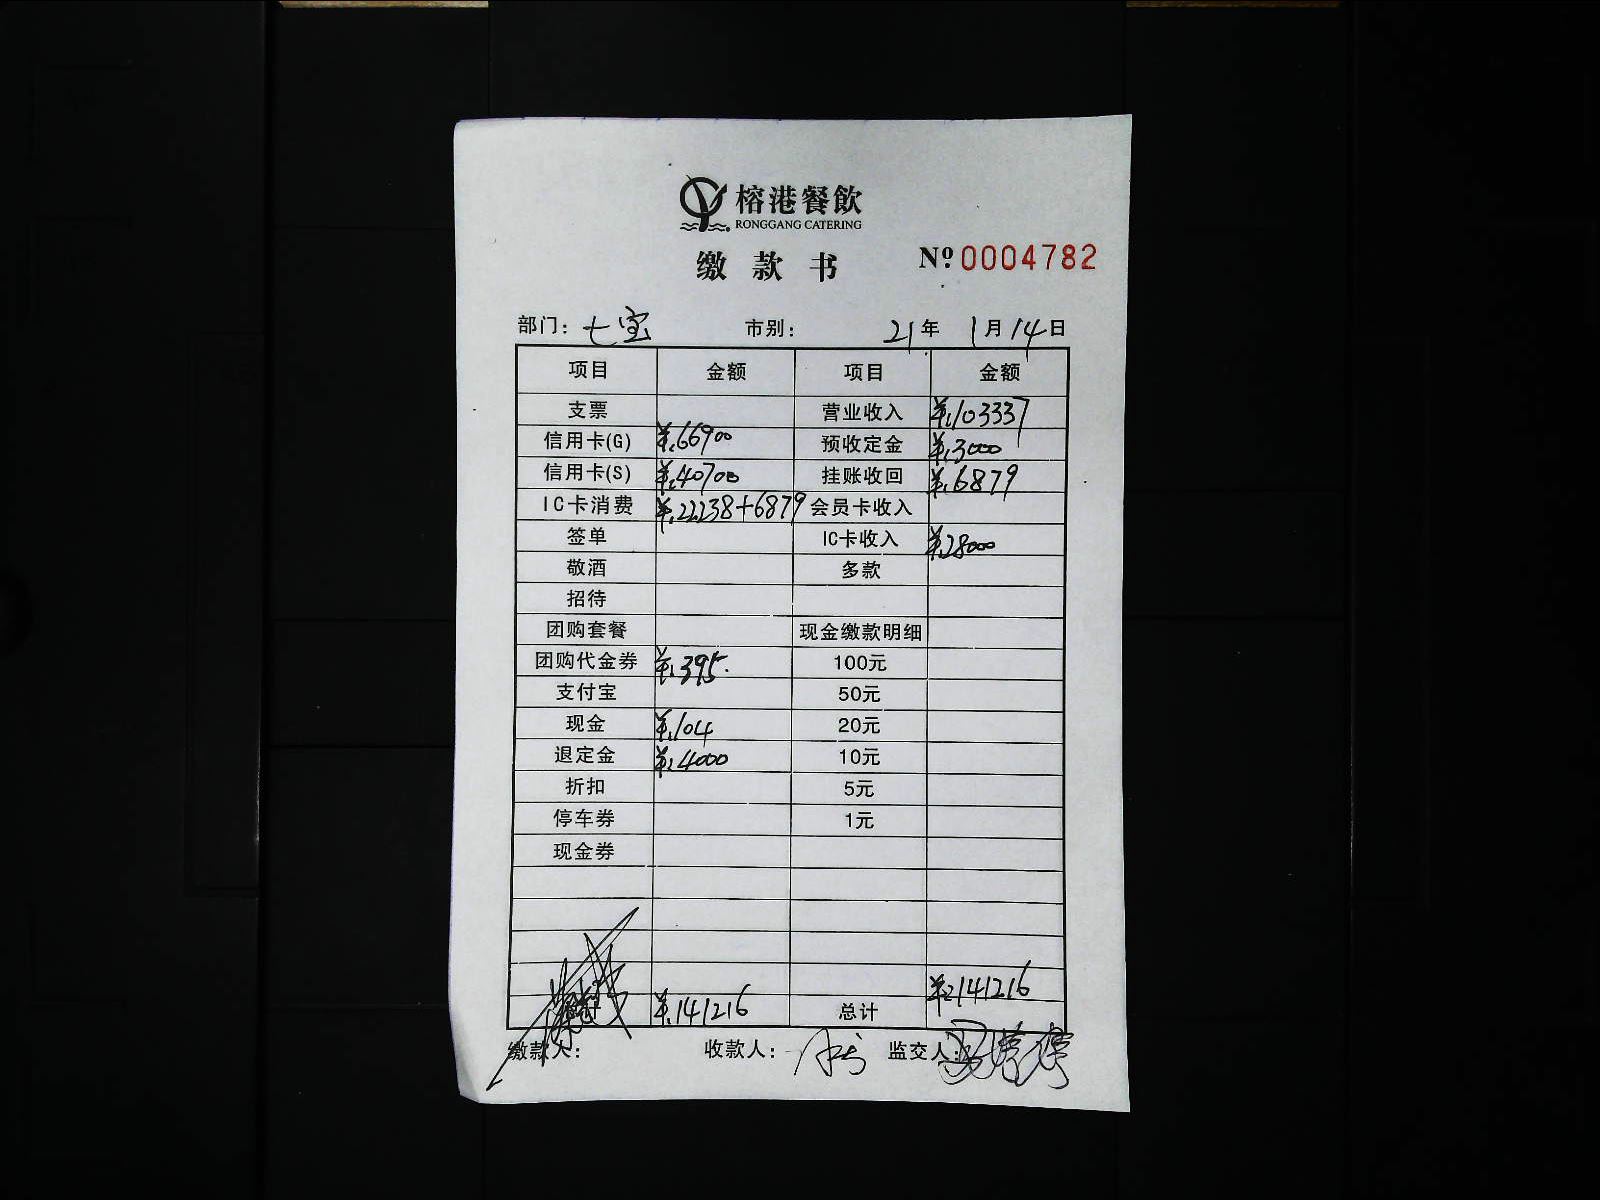 榕港餐飲
RONGGANG CATERING
缴款书 № 0004782
部门：七宝 市别： 21年 1月14日
项目 金额 项目 金额
支票 营业收入 ¥103337
信用卡(G) ¥66900 预收定金 ¥3000
信用卡(S) ¥40700 挂账收回 ¥6879
IC卡消费 ¥22238+6879 会员卡收入
签单 IC卡收入 ¥28000
敬酒 多款
招待
团购套餐 现金缴款明细
团购代金券 ¥395.
支付宝 50元
现金 ¥104 20元
退定金 ¥4000 10元
折扣 5元
停车券 1元
现金券
¥141216
¥141216 总计
缴款人： 收款人： 监交人：